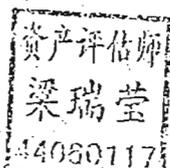 资产评估师
梁瑞莹
44060117